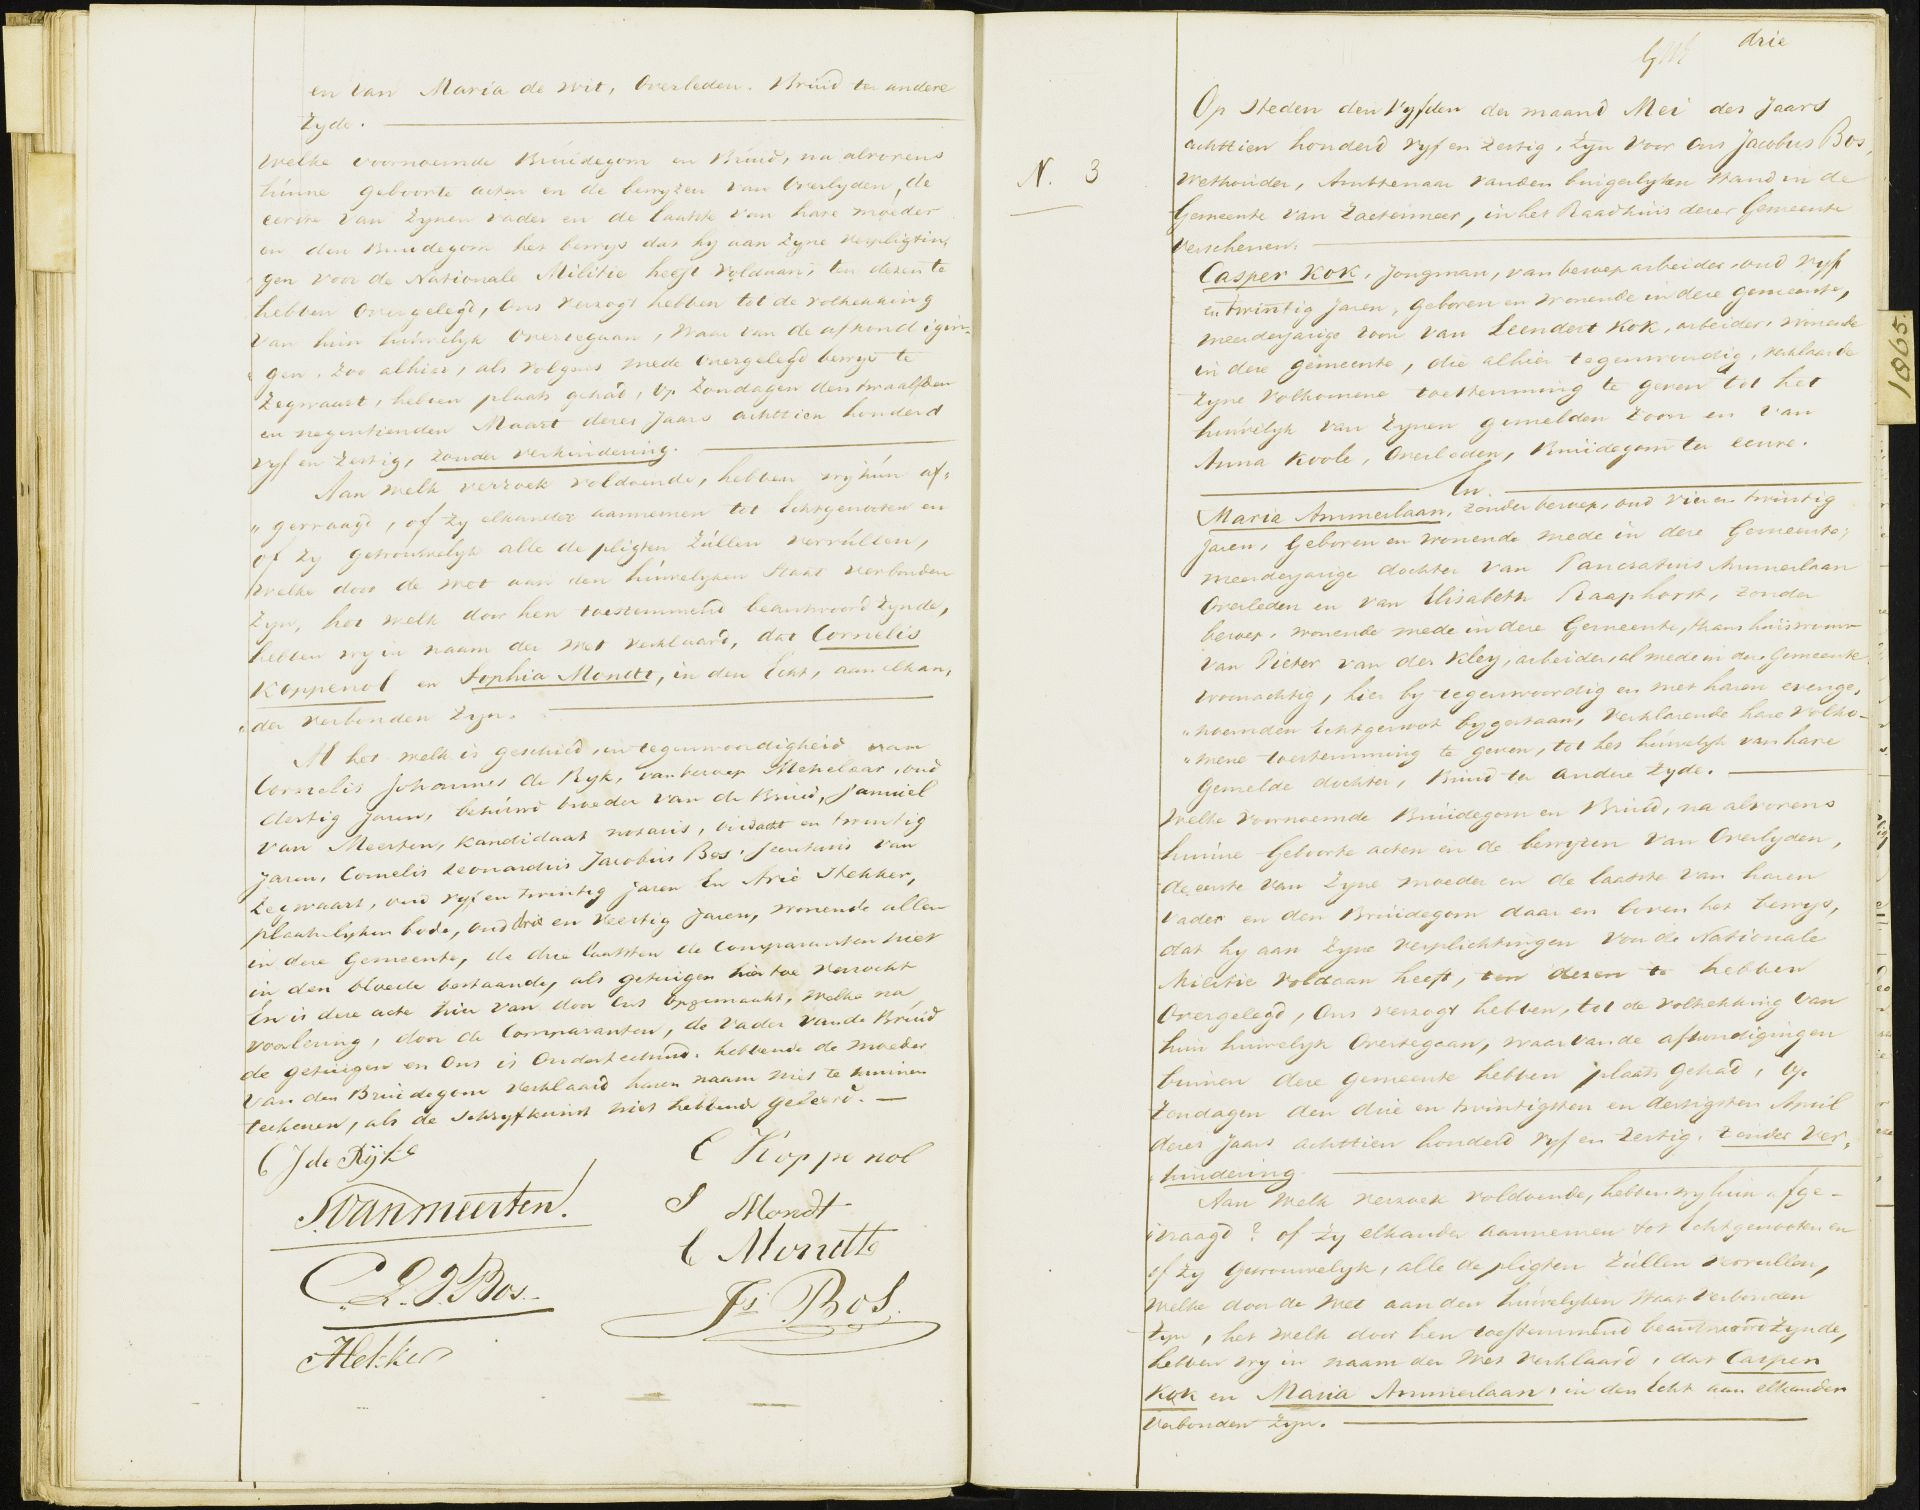 en van Maria de Wit, Overleden. Bruid ter andere
Zyde.
Welke voornoemde Bruidegom en Bruid, na alvorens
hunne geboorte acten en de bewyzen van Overlyden, de
eerste van Zynen vader en de laatste van hare moeder
en den Bruidegom het bewys dat hy aan Zyne verpligtin„
gen voor de Nationale Militie heeft voldaan, ten dezen te
hebben Overgelegd, Ons verzogt hebben tot de voltrekking
van hun huwelyk Overtegaan, Waar van de afkondigin„
gen, Zoo alhier, als volgens mede Overgelegd bewys te
Zegwaart, hebben plaats gehad, Op Zondagen den twaalfden
en negentienden Maart dezes Jaars achttien honderd
vyf en Zestig, Zonder verhindering.
Aan welk verzoek voldoende, hebben wy hun af„
„gevraagd, of Zy elkander aannemen tot Echtgenooten en
of Zy getrouwelyk alle de pligten Zullen vervullen,
welke door de wet aan den huwelyken Staat verbonden
Zyn, het welk door hen toestemmend beantwoord Zynde,
hebben wy in naam der Wet verklaard, dat Cornelis
Koppenol en Sophia Mondt, in den Echt, aan elkan„
„der verbonden Zyn.
Al het welk is geschied in tegenwoordigheid van
Cornelis Johannes de Ryk, van beroep Metselaar, oud
dertig Jaren, behuwd broeder van de Bruid, Samuel
van Meerten, Kandidaat notaris, oud acht en twintig
Jaren, Cornelis Leonardus Jacobus Bos, Secretaris van
Zegwaart, oud vyf en twintig jaren En Arie Hekker,
plaatselyken bode, oud drie en Veertig Jaren, wonende allen
in deze Gemeente, de drie laatsten de Comparanten niet
in den bloede bestaande, als getuigen hiertoe verzocht
En is deze acte hier van door Ons opgemaakt, welke na
voorlezing, door de Comparanten, de vader van de Bruid
de getuigen en Ons is Onderteekend. hebbende de moeder
van den Bruidegom verklaard haren naam niet te kunnen
teekenen, als de Schryfkunst niet hebbende geleerd.
C J de Rijk
C Koppenol
S. van Meerten.
S Mondt
C Mondt
C. L. J. Bos.
Js. Bos.
AHekker
drie
N. 3
Op Heden den Vyfden der maand Mei des Jaars
achttien honderd vyf en Zestig, Zyn voor Ons Jacobus Bos,
Wethouder, Ambtenaar van den burgerlyken Stand in de
Gemeente van Zoetermeer, in het Raadhuis dezer Gemeente
verschenen:
Casper Kok, Jongman, van beroep arbeider, oud vyf
en twintig Jaren, geboren en wonende in deze gemeente,
meerderjarige Zoon van Leendert Kok, arbeider, wonende
in deze gemeente, die alhier tegenwoordig, verklaarde
Zyne volkomene toestemming te geven tot het
huwelyk van Zynen gemelden Zoon en van
Anna Koole, Overleden, Bruidegom ter eenre.
En
Maria Ammerlaan, Zonder beroep, oud vier en twintig
Jaren, Geboren en wonende mede in deze Gemeente,
meerderjarige dochter van Pancratius Ammerlaan
Overleden en van Elisabeth Raaphorst, Zonder
beroep, wonende mede in deze Gemeente, thans huisvrouw
van Pieter van der Kley, arbeider, al mede in deze Gemeente
woonachtig, hier by tegenwoordig en met haren evenge„
„noemden Echtgenoot bygestaan, Verklarende hare volko„
„mene toestemming te geven, tot het huwelyk van hare
Gemelde dochter, Bruid ter andere Zyde.
Welke voornoemde Bruidegom en Bruid, na alvorens
hunne Geboorte acten en de bewyzen van Overlyden,
de eerste van Zyne moeder en de laatste van haren
Vader en den Bruidegom daar en boven het bewys,
dat hy aan Zyne verplichtingen voor de Nationale
Militie voldaan heeft, ten dezen te hebben
Overgelegd, Ons verzogt hebben, tot de voltrekking van
hun huwelyk Overtegaan, waar van de afkondigingen
binnen deze gemeente hebben plaats gehad, op
Zondagen den drie en twintigsten en dertigsten April
dezes Jaars achttien honderd vyf en Zestig. Zonder Ver„
hindering.
Aan Welk verzoek voldoende, hebben wy hun afge„
„vraagd? of Zy elkander aannemen tot Echtgenooten en
of Zy Getrouwelyk, alle de pligten Zullen vervullen,
Welke door de Wet aan den huwelyken Staat Verbonden
Zyn, het Welk door hen toestemmend beantwoord Zynde,
hebben wy in naam der Wet verklaard, dat Casper
Kok en Maria Ammerlaan, in den Echt aan elkander
verbonden Zyn.
1865.